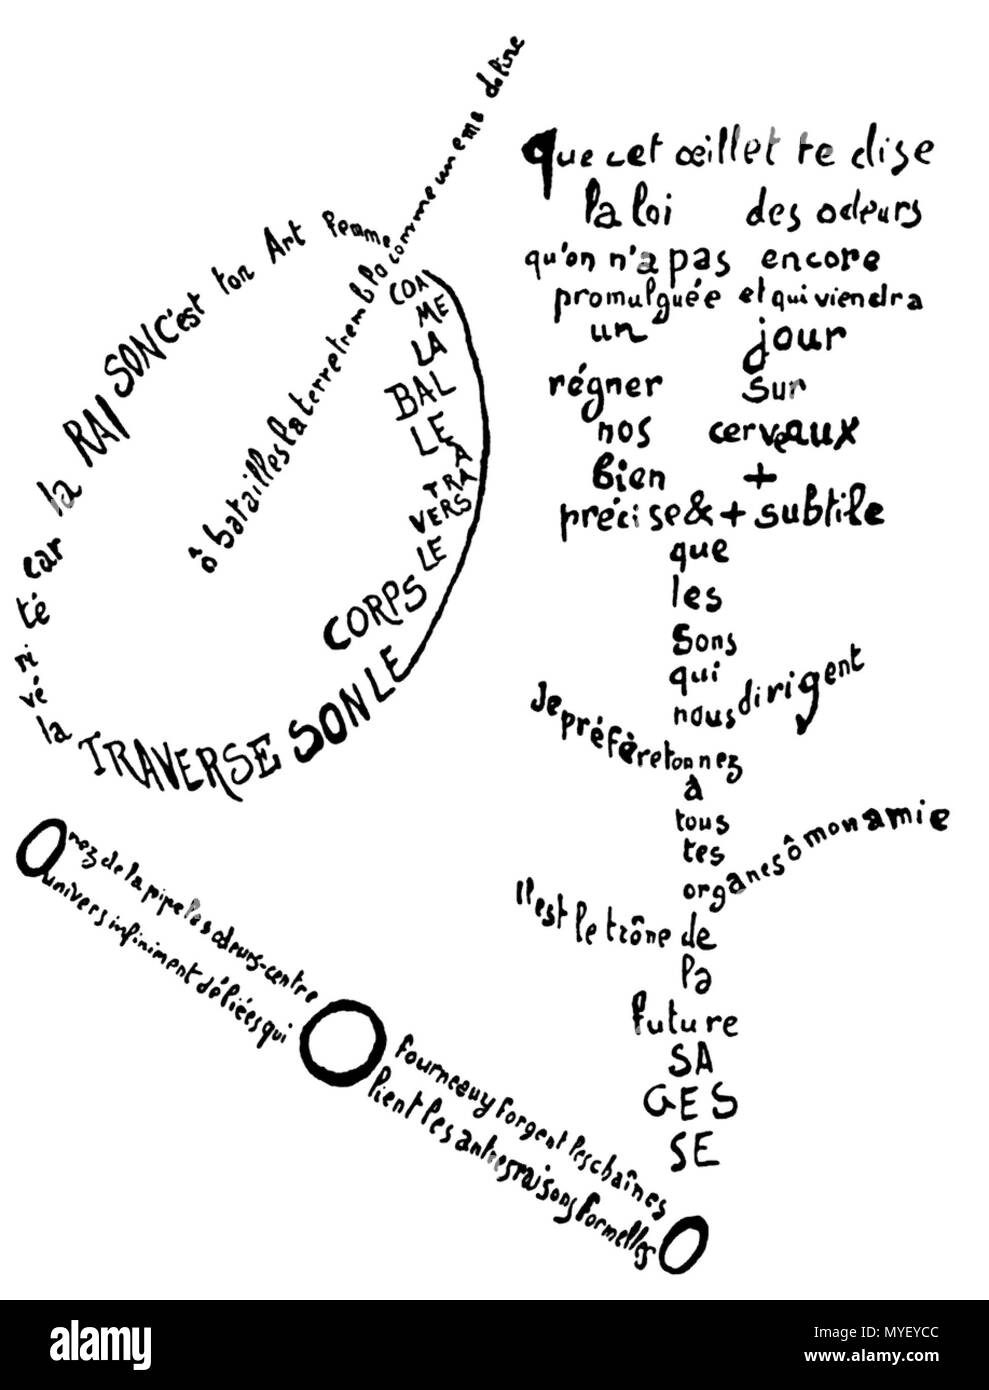 ô batailles la terre tremble comme une mandoline
COM
ME
LA
BAL
LE
À
TRA
VERS
LE
CORPS
LE SON TRAVERSE
la vé ri té car la RAISON C'est ton Art Femme
Que cet œillet te dise
la loi des odeurs
qu'on n'a pas encore
promulguée et qui viendra
un jour
régner sur
nos cerveaux
bien +
précise & + subtile
que
les
sons
qui
nous dirigent
Je préfère ton nez
à
tous
tes
organes ô mon amie
Il est le trône de
la
future
SA
GES
SE
O nez de la pipe les odeurs-centre O fourneau y forgent les chaînes O
univers infiniment déliées qui lient les autres raisons formelles
alamy
Image ID: MYEYCC
www.alamy.com